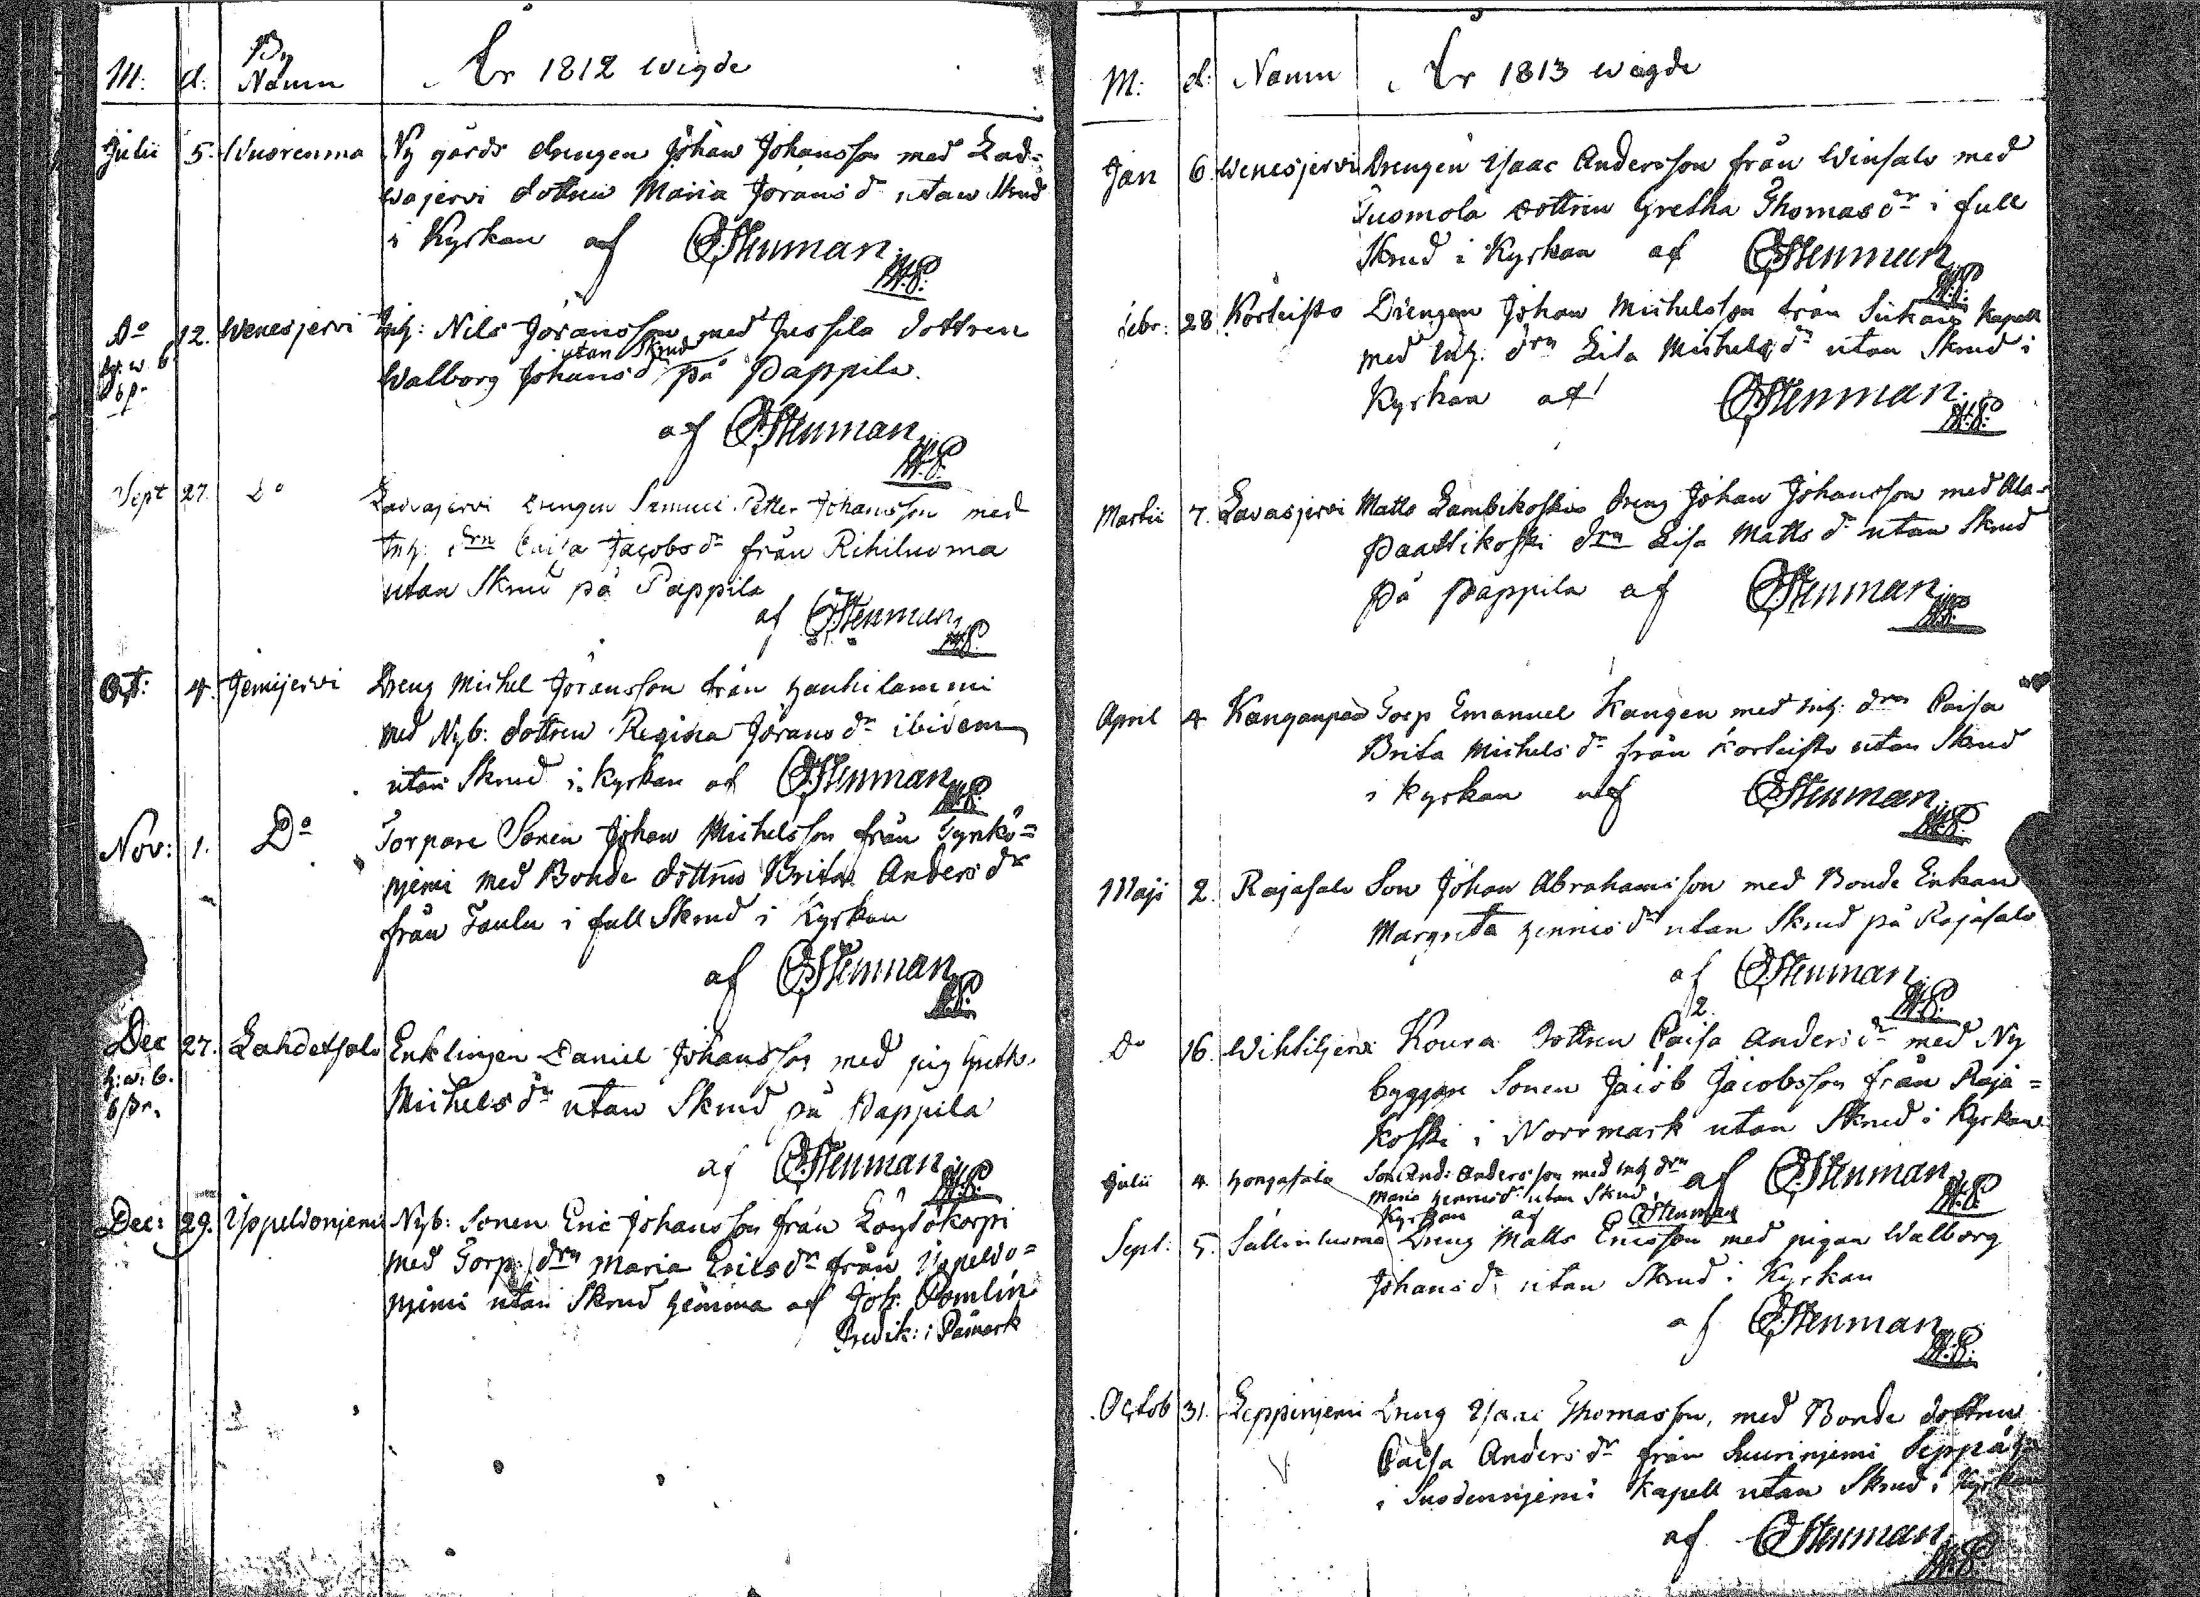 M: d: By Namn År 1812 wigde
Julii 5. Wuorenma Ny gårds drengen Johan Johansson med Lad=
wajervi dottren Maria Jöransdr utan Skrud
i Kyrkan af CJStenman
M.P.
Do 12. Wenesjervi Inh: Nils Jöransson med Jussila dottren
utan Skrud
Walborg Johansdr på Pappila.
af CJStenman
M.P.
Sept 27. Do Ladvajervi drengen Samuel Petter Johansson med
Inh: drn Caisa Jacobsdr från Rihiluoma
utan Skrud på Pappila
af CJStenman
M.P.
Oct: 4. Jemijervi Dreng Michel Jöransson från Hauhilammi
med Nyb: dottren Regina Jöransdr ibidem
utan Skrud i Kyrkan af CJStenman
M.P.
Nov: 1. Do Torpare Sonen Johan Michelsson från Tyrkö=
njemi med Bonde dottren Brita Andersdr
från Taulu i full Skrud i Kyrkan
af CJStenman
M.P.
Dec 27. Lahdetsalo Enklingen Daniel Johansson med pig
h: w: b.
Michelsdr utan Skrud på Pappila
af CJStenman
M.P.
Dec: 29. Yppeldonjemi Nyb: Sonen Eric Johansson från Löytökorpi
med Torp: drn Maria Ericsdr från Uppeldo=
njemi utan Skrud hemma af Joh: Pomlin
Predik: i Påmark
M: d: Namn År 1813 wigde
Jan 6. Wenesjervi Drengen Isaac Andersson från Winsalo med
Tuomola dottren Gretha Thomasdr i full
Skrud i Kyrkan af CJStenman
M.P.
Febr: 28. Körteisto Drengen Johan Michelsson från Siikais Kapell
med Inh: drn Lisa Michelsdr utan Skrud i
Kyrkan af CJStenman
M.P.
Martii 7. Lavasjervi Matts Lambikoskis dreng Johan Johansson med Ala=
Paattikoski drn Lisa Mattsdr utan Skrud
På Pappila af CJStenman
M.P.
April 4 Kanganpää Torp Emanuel Kangen med Inh: drn Caisa
Brita Michelsdr från Korteisto utan Skrud
i Kyrkan af CJStenman
M.P.
Maji 2. Rajasalo Son Johan Abrahamsson med Bonde Enkan
Margreta Henricsdr utan Skrud på Rajasalo
af CJStenman
M.P.
Do 16. Wihtiljervi Koura dottren Caisa Andersdr med Ny
byggare Sonen Jacob Jacobsson från Raja=
koski i Norrmark utan Skrud i Kyrkan
af CJStenman
M.P.
Julii 4 Hongasalo Son And: Andersson med Inh drn
Maria Henricsdr utan Skrud i
Kyrkan af CJStenman
Sept: 5. Sällinluoma Dreng Matts Ericsson med pigan Walborg
Johansdr utan Skrud i Kyrkan
af CJStenman
M.P.
Octob 31. Leppinjemi Dreng Isaac Thomasson, med Bonde dottren
Caisa Andersdr från Suurinjemi Seppälä
i Suodennjemi Kapell utan Skrud i Kyrkan
af CJStenman
M.P.